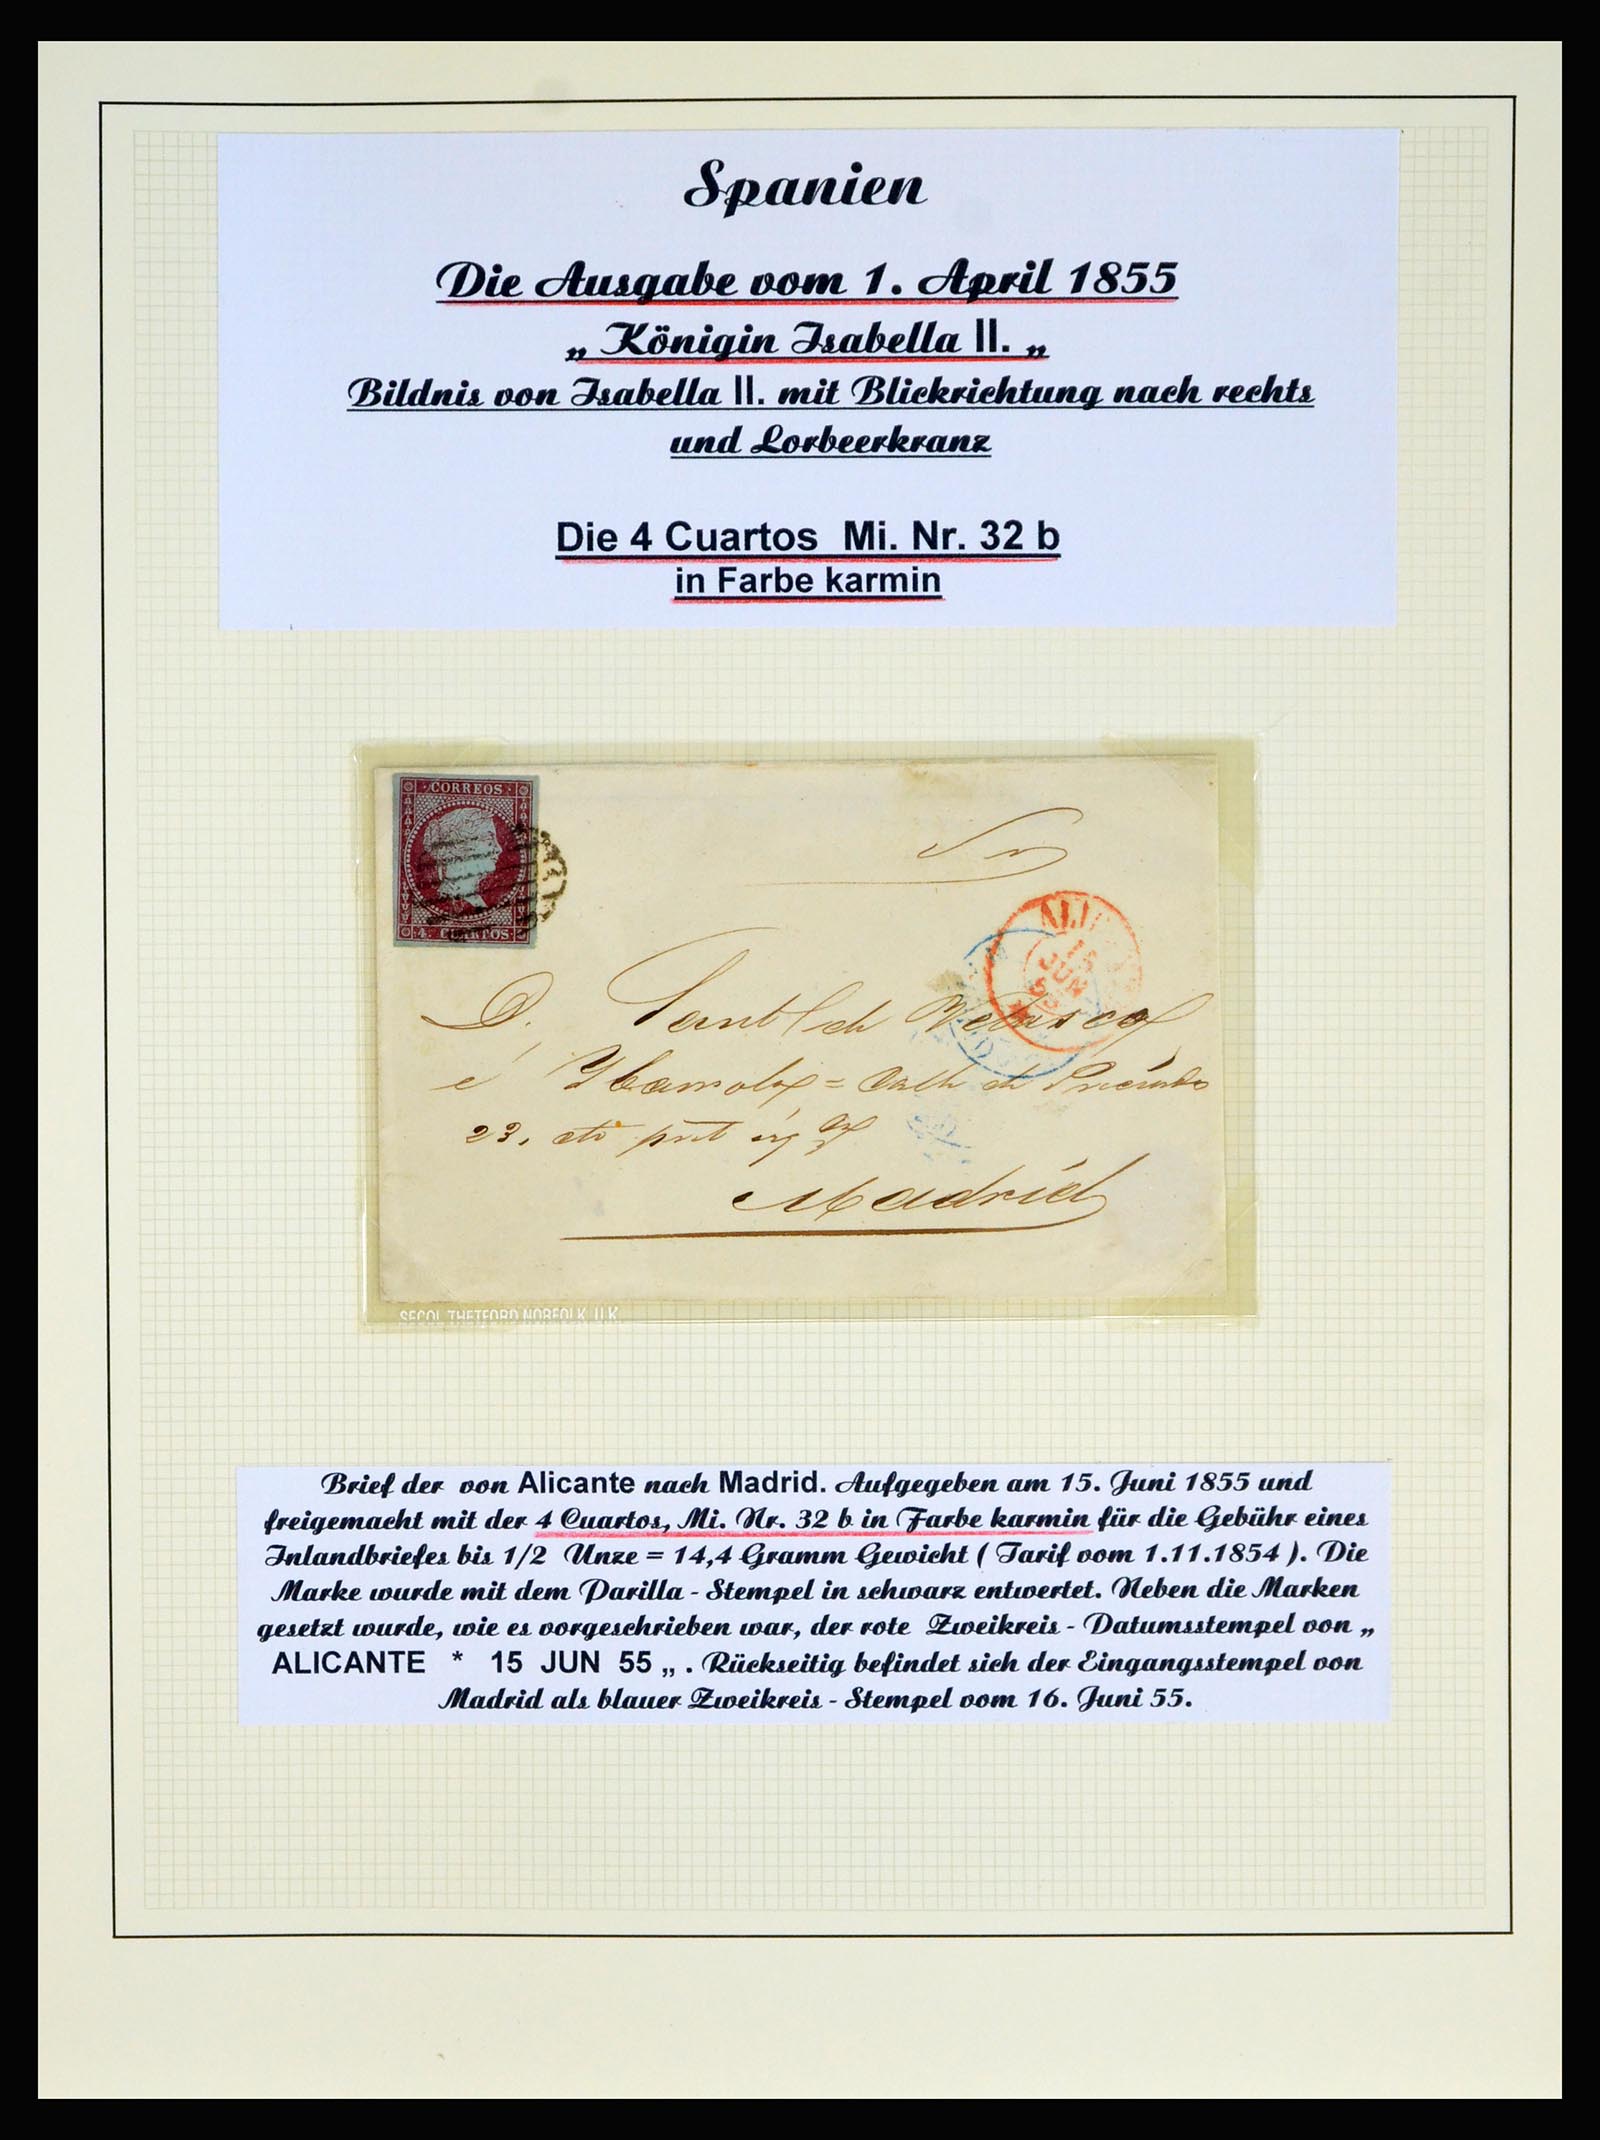 Spanien
Die Ausgabe vom 1. April 1855
„ Königin Isabella II. „
Bildnis von Isabella II. mit Blickrichtung nach rechts
und Lorbeerkranz
Die 4 Cuartos Mi. Nr. 32 b
in Farbe karmin
CORREOS
4 CUARTOS
15
JUN
D.
Velasco
23.
Madrid
SECOL THETFORD NORFOLK U.K.
Brief der von Alicante nach Madrid. Aufgegeben am 15. Juni 1855 und
freigemacht mit der 4 Cuartos, Mi. Nr. 32 b in Farbe karmin für die Gebühr eines
Inlandbriefes bis 1/2 Unze = 14,4 Gramm Gewicht ( Tarif vom 1.11.1854 ). Die
Marke wurde mit dem Parilla - Stempel in schwarz entwertet. Neben die Marken
gesetzt wurde, wie es vorgeschrieben war, der rote Zweikreis - Datumsstempel von „
ALICANTE * 15 JUN 55 „ . Rückseitig befindet sich der Eingangsstempel von
Madrid als blauer Zweikreis - Stempel vom 16. Juni 55.